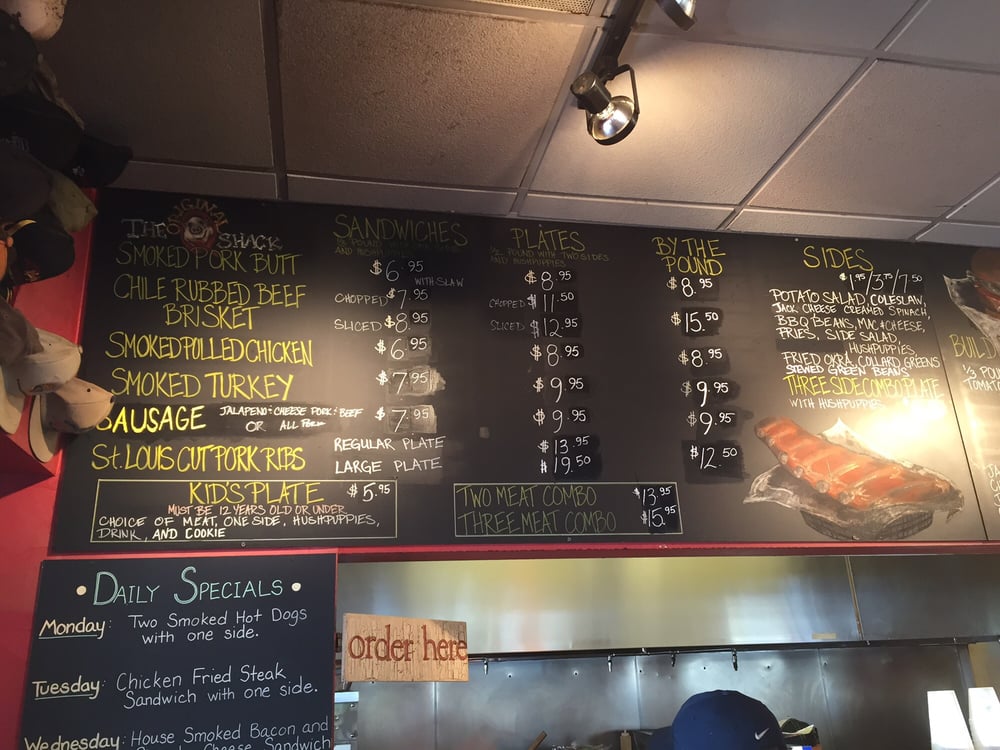 THE ORIGINAL
SHACK
SMOKED PORK BUTT
CHILE RUBBED BEEF
BRISKET
SMOKED PULLED CHICKEN
SMOKED TURKEY
SAUSAGE JALAPENO-CHEESE PORK: BEEF
OR ALL PORK
St. LOUIS CUT PORK RIBS
SANDWICHES
AND HUSHPUPPIES
$6.95
WITH SLAW
CHOPPED $7.95
SLICED $8.95
$6.95
$7.95
$7.95
REGULAR PLATE
LARGE PLATE
PLATES
POUND WITH TWO SIDES
AND HUSHPUPPIES
$8.95
CHOPPED $11.50
SLICED $12.95
$8.95
$9.95
$9.95
$13.95
$19.50
BY THE
POUND
$8.95
$15.50
$8.95
$9.95
$9.95
$12.50
SIDES
$1.95/3.75/7.50
POTATO SALAD, COLESLAW,
JACK CHEESE CREAMED SPINACH,
BBQ BEANS, MAC & CHEESE,
FRIES, SIDE SALAD,
HUSHPUPPIES,
FRIED OKRA, COLLARD GREENS
STEWED GREEN BEANS
THREE SIDE COMBO PLATE
WITH HUSHPUPPIES
BUILD
1/3 POU
TOMAT
KID'S PLATE $5.95
MUST BE 12 YEARS OLD OR UNDER
CHOICE OF MEAT, ONE SIDE, HUSHPUPPIES,
DRINK, AND COOKIE
TWO MEAT COMBO $13.95
THREE MEAT COMBO $15.95
• DAILY SPECIALS •
Monday: Two Smoked Hot Dogs
with one side.
Tuesday: Chicken Fried Steak
Sandwich with one side.
Wednesday: House Smoked Bacon and
Cheese Sandwich
order here